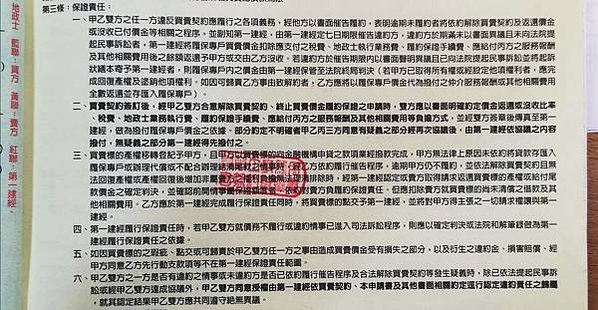 第三條：保證責任
一、甲乙雙方之任一方違反買賣契約應履行之各項義務，經他方以書面催告履約，表明逾期未履約者將依約解除買賣契約及返還價金
或沒收已付價金等相關之程序，並副知第一建經，由第一建經定七日期限催告違約方，違約方於期滿未以書面異議且未向法院提
起民事訴訟者，第一建經將履保專戶買賣價金扣除應支付之稅費、地政士執行業務費、履約保證手續費、應給付丙方之服務報酬
及其他相關費用後之餘額返還予甲方或交由乙方沒收。若違約方於催告期限內以書面聲明異議且已向法院提起民事訴訟並將起訴
狀繕本寄予第一建經者，則履保專戶內之價金由第一建經保管至法院終局判決
應
完成回復產權及塗銷他項權利）。倘若因可歸責甲方事由致解約者，乙方應將履保專戶價金代為撥付之仲介服務報酬或其他相關費用
全數返還並存匯入履保專戶）。
二、買賣契約簽訂後，經甲乙雙方合意解除買賣契約、終止買賣價金履約保證之申請時，雙方應以書面明確約定價金返還或沒收比率
、稅費、地政士業務執行費、履約保證手續費、應給付丙方之服務報酬及其他相關費用等負擔方式，並經雙方簽章後傳真至第一
建經，做為撥付履保專戶價金之依據。部分約定不明確者甲乙丙三方同意有疑義之部分經再次協議後，由第一建經依協議之內容
撥付，無疑義之部分第一建經得先撥付之。
三、買賣標的產權移轉登記予甲方，且甲方以買賣標的向金融機構申貸之款項業經撥款完成，甲方無法律上原因未依約將貸款存匯入
履保專戶或辦理代償或不配合辦理
法回復產權或產權回復後增加
款價金之確定判決，並確認前開情事
相關費用。乙方應於第一建經完成履約保證責任同時，將買賣標的點交予第一建經，並將對甲方得主張之一切請求權讓與第一
建經。
四、第一建經履行保證責任時，若甲乙雙方就債務不履行或違約情事已進入司法訴訟程序，則應以確定判決或法院和解筆錄做為第一
建經履行保證責任之依據。
五、如因買賣標的之瑕疵、點交或可歸責於甲乙雙方任一方之事由造成買賣價金受有損失之部分，以及衍生之違約金、損害賠償、經
甲方同意乙方先行動支款項等不在第一建經保證責任範圍。
六、甲乙雙方之一方是否有違約之情事或未違約方是否已依約履行催告程序及合法解除買賣契約等發生疑義時，除已依法提起民事訴
訟或經甲乙雙方達成協議外，甲乙雙方同意授權由第一建經依買賣契約、本申請書及其他書面相關約定逕行認定違約責任之歸屬
，就其認定結果甲乙雙方應共同遵守絕無異議。
地政士 藍聯：買方 黃聯：賣方 紅聯：第一建經。